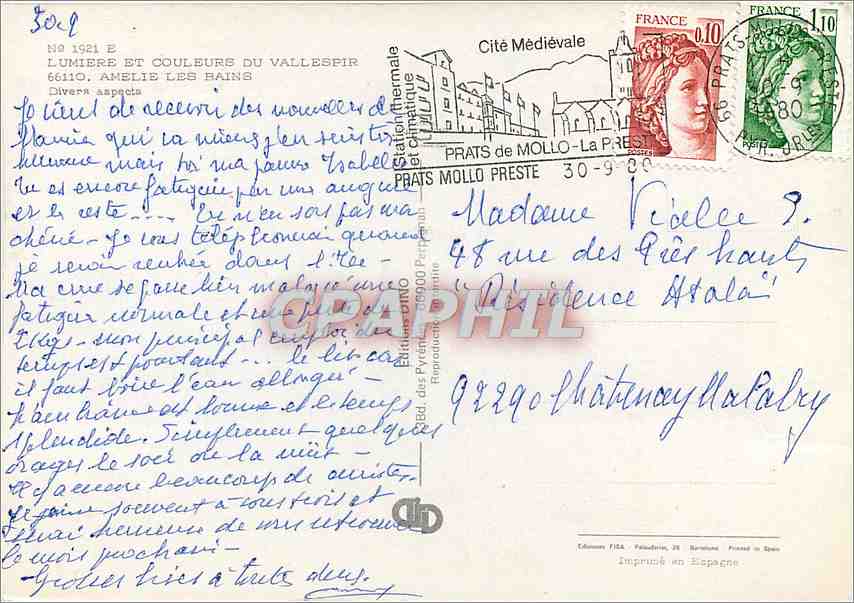 30-9
Nº 1921 E
LUMIERE ET COULEURS DU VALLESPIR
66110. AMELIE LES BAINS
Divers aspects
Je viens de recevoir des nouvelles de
qui va mieux j'en suis très
heureuse mais toi ma pauvre Isabelle
tu es encore fatiguée par une angine
et le reste ....
chérie - Je vous téléphonerai quand
je serai rentrée dans
Ma cure se passe bien malgré une
fatigue normale et une
mon principal emploi du
temps est pourtant ... le lit car
il faut boire l'eau allongé -
est bonne et le temps
splendide. Simplement quelques
orages le soir ou la nuit -
Il y a encore beaucoup de curistes.
Je pense souvent à vous trois et
serai heureuse de vous retrouver
le mois prochain -
Grosses bises à toutes deux.
Station thermale
et climatique
Cité Médiévale
PRATS de MOLLO - La PRESTE
PRATS MOLLO PRESTE 30-9-80
FRANCE
0,10
POSTES
FRANCE
1,10
POSTES
66 PRATS MOLLO PRESTE
30-9
80
PYR. ORLES
Editions DINO
Bd. des Pyrénées - 66000 Perpignan
Reproduction interdite
CPAPHIL
Madame Vialle S.
48 rue des Prés hauts
"Résidence Atala"
92290 Châtenay Malabry
Ediciones FISA - Palaudarias, 26 - Barcelona - Printed in Spain
Imprimé en Espagne